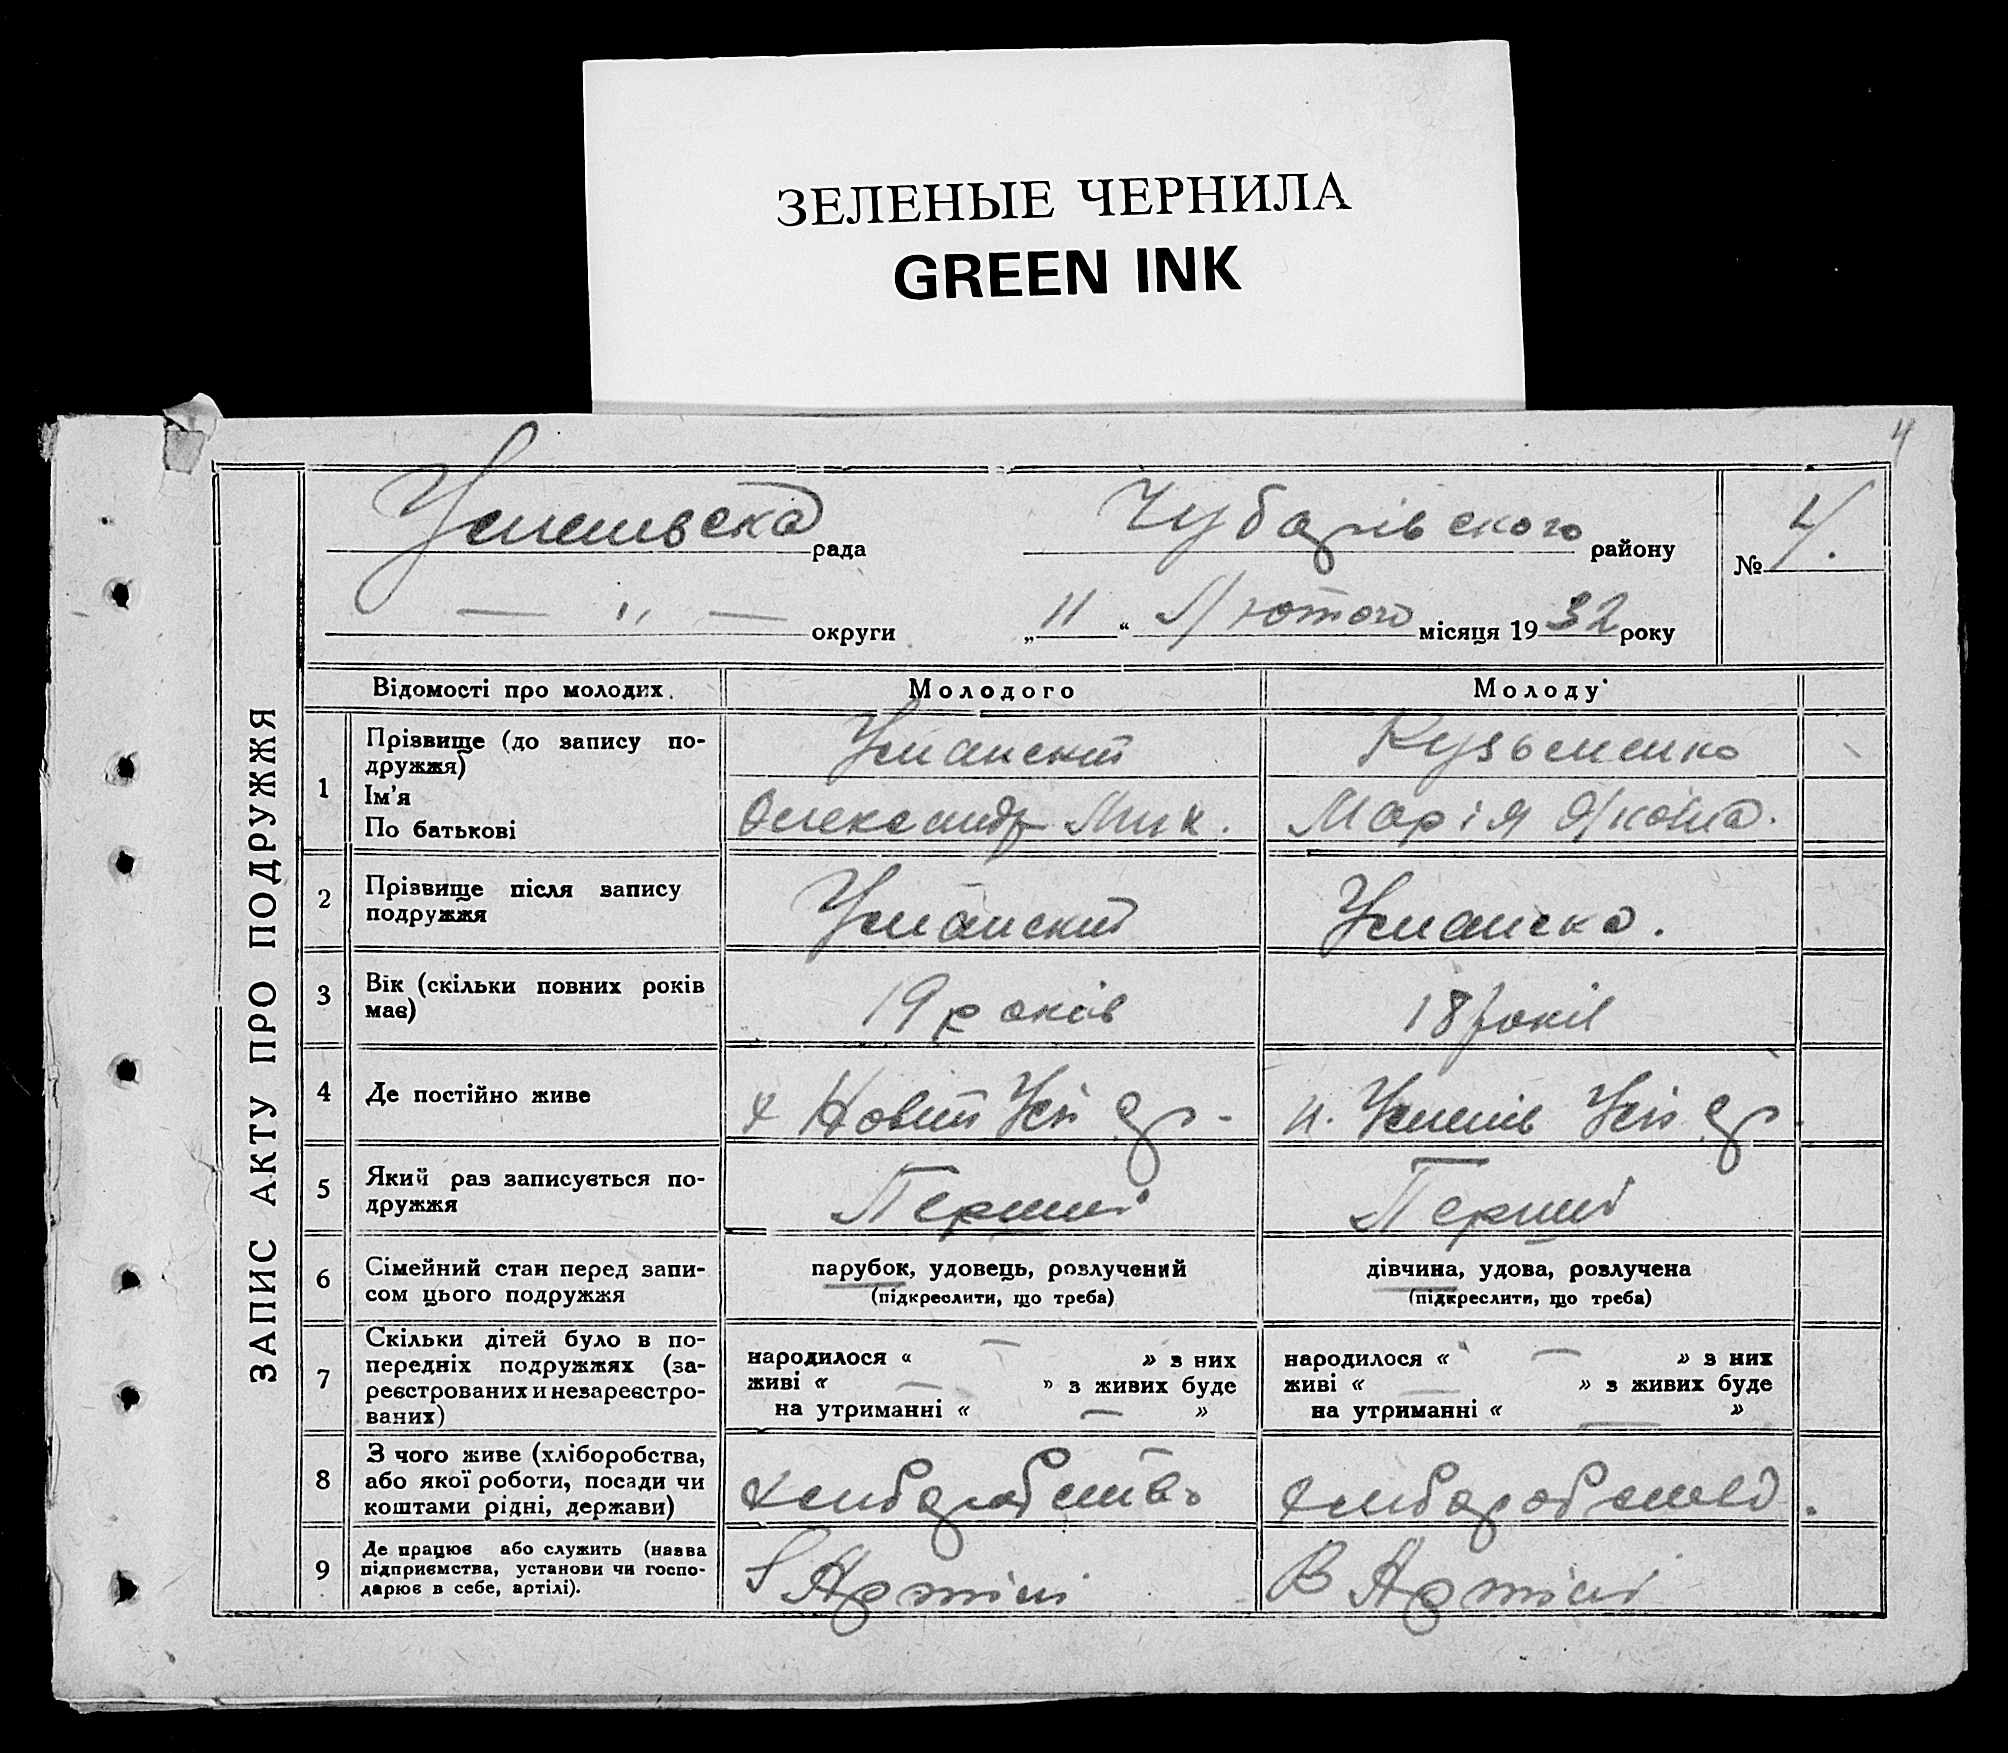 ЗЕЛЕНЫЕ ЧЕРНИЛА
GREEN INK
4
ЗАПИС АКТУ ПРО ПОДРУЖЖЯ
рада
Чубарівського району
№ 4.
— " — округи
„11“ Лютого місяця 1932 року
Відомості про молодих. Молодого Молоду
1 Прізвище (до запису по-
дружжя) Уманский Кузьменко
Ім'я
По батькові Олександр Мик. Марія Якова.
2 Прізвище після запису
подружжя Уманский Уманска.
3 Вік (скільки повних років
має) 19 років 18 років
4 Де постійно живе
5 Який раз записується по-
дружжя Перший Перший
6 Сімейний стан перед запи-
сом цього подружжя
парубок, удовець, розлучений
(підкреслити, що треба)
дівчина, удова, розлучена
(підкреслити, що треба)
7 Скільки дітей було в по-
передніх подружжях (за-
реєстрованих и незареєстро-
ваних)
народилося « — » з них
живі « — » з живих буде
на утриманні « — »
народилося « — » з них
живі « — » з живих буде
на утриманні « — »
8 З чого живе (хліборобства,
або якої роботи, посади чи
коштами рідні, держави)
9 Де працює або служить (назва
підприємства, установи чи госпо-
дарює в себе, артілі).
В Артілі В Артілі